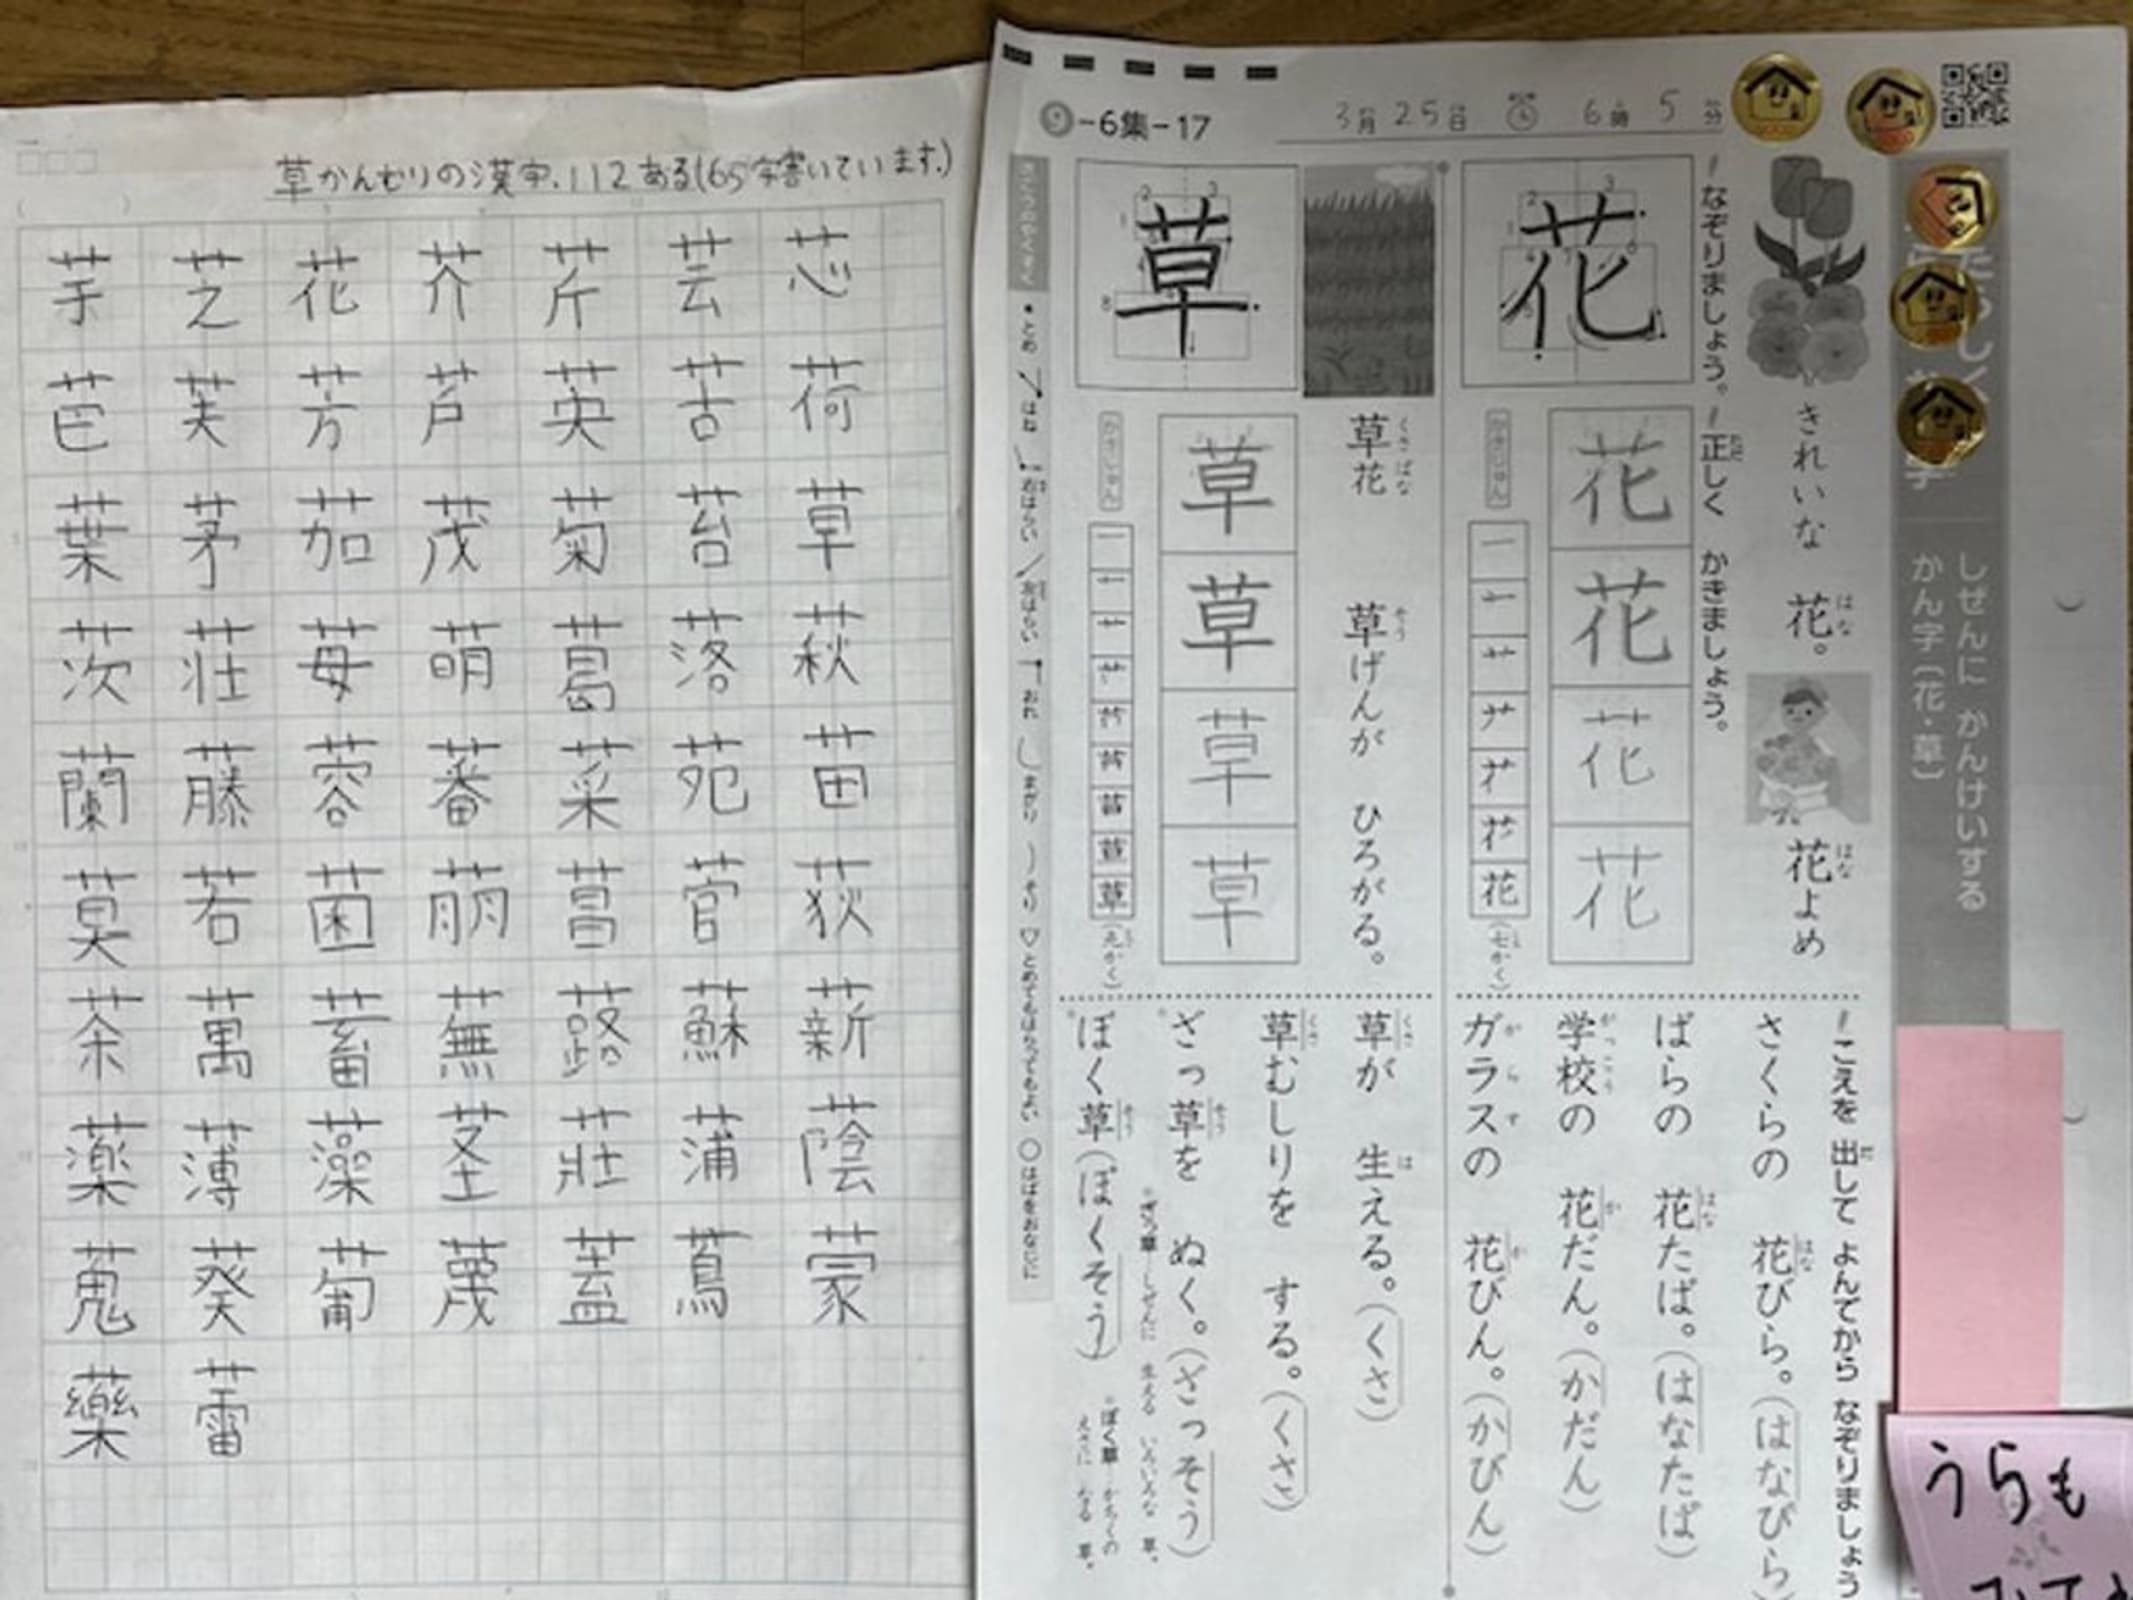 草かんむりの漢字.112ある(65字書いています.)
芋 芝 花 芥 芹 芸 芯
芭 芙 芳 芦 英 苦 荷
葉 茅 茄 茂 菊 苔 草
茨 荘 苺 萌 葛 落 萩
蘭 藤 蓉 蕃 菜 苑 苗
莫 若 菌 萠 菖 菅 荻
茶 萬 蓄 蕪 蕗 蘇 薪
薬 薄 藻 茎 莊 蒲 蔭
蒐 葵 葡 蔑 蓋 蔦 蒙
藥 蕾
-6集-17
3月25日 6時5分
しぜんに かんけいする
かん字〔花・草〕
きれいな 花。
はな
花よめ
はな
なぞりましょう。
正しく かきましょう。
ただ
花
花
花
花
花
かきじゅん
花
(七かく)
草花
くさばな
草げんが ひろがる。
そう
草
草
草
草
草
かきじゅん
草
(九かく)
こえを 出して よんでから なぞりましょう
だ
さくらの 花びら。(はなびら)
はな
ばらの 花たば。(はなたば)
はな
学校の 花だん。(かだん)
がっこう か
ガラスの 花びん。(かびん)
がらす か
草が 生える。(くさ)
くさ は
草むしりを する。(くさ)
くさ
ざっ草を ぬく。(ざっそう)
そう
ざっ草…しぜんに 生える いろいろな 草。
ぼく草(ぼくそう)
そう
ぼく草…かちくの
えさに なる 草。
・とめ はね 右はらい 左はらい おれ まがり そり とめてもはらってもよい ○はばをおなじに
うらも